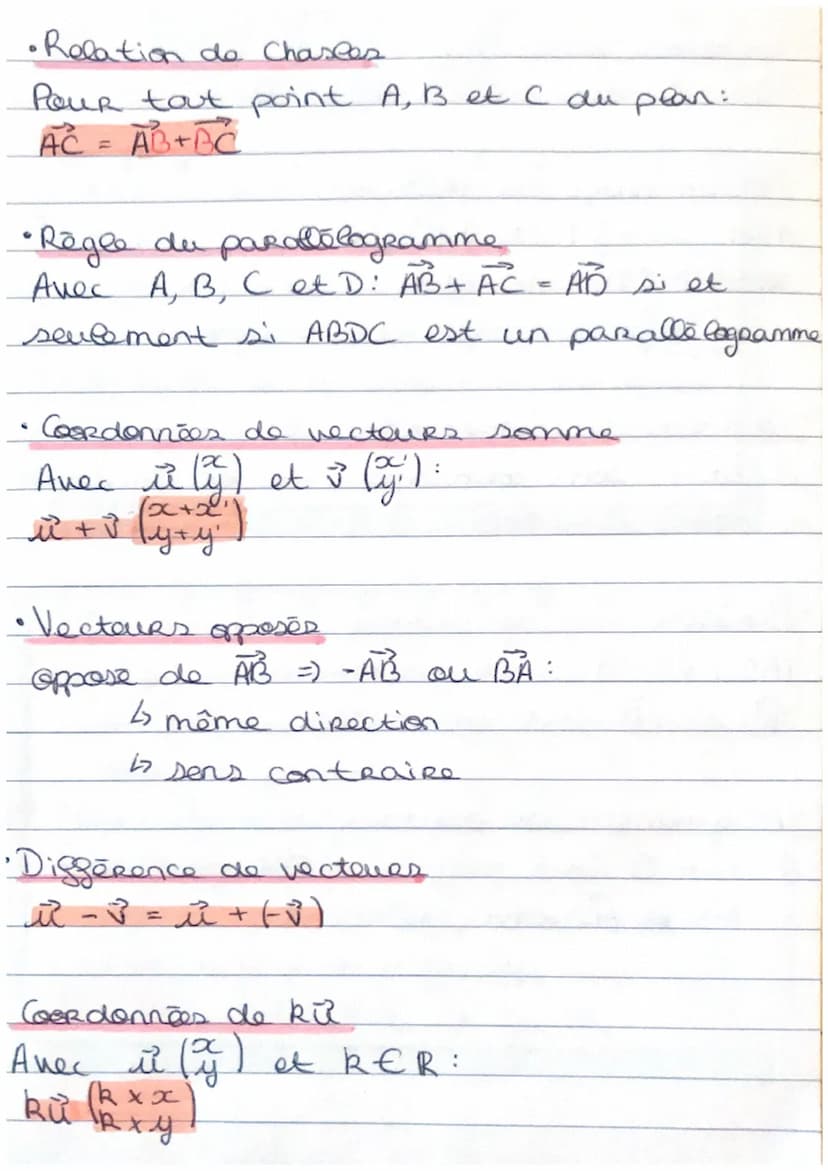 • Relation de Chasles
Pour tout point A, B et C du plan :
$\vec{AC} = \vec{AB} + \vec{BC}$
• Règle du parallélogramme
Avec A, B, C et D : $\vec{AB} + \vec{AC} = \vec{AD}$ si et
seulement si ABDC est un parallélogramme
• Coordonnées de vecteurs somme
Avec $\vec{u} \binom{x}{y}$ et $\vec{v} \binom{x'}{y'}$ :
$\vec{u} + \vec{v} \binom{x+x'}{y+y'}$
• Vecteurs opposés
Opposé de $\vec{AB}$ => $-\vec{AB}$ ou $\vec{BA}$ :
↳ même direction
↳ sens contraire
• Différence de vecteurs
$\vec{u} - \vec{v} = \vec{u} + (-\vec{v})$
Coordonnées de $k\vec{u}$
Avec $\vec{u} \binom{x}{y}$ et k ∈ R :
$k\vec{u} \binom{k \times x}{k \times y}$